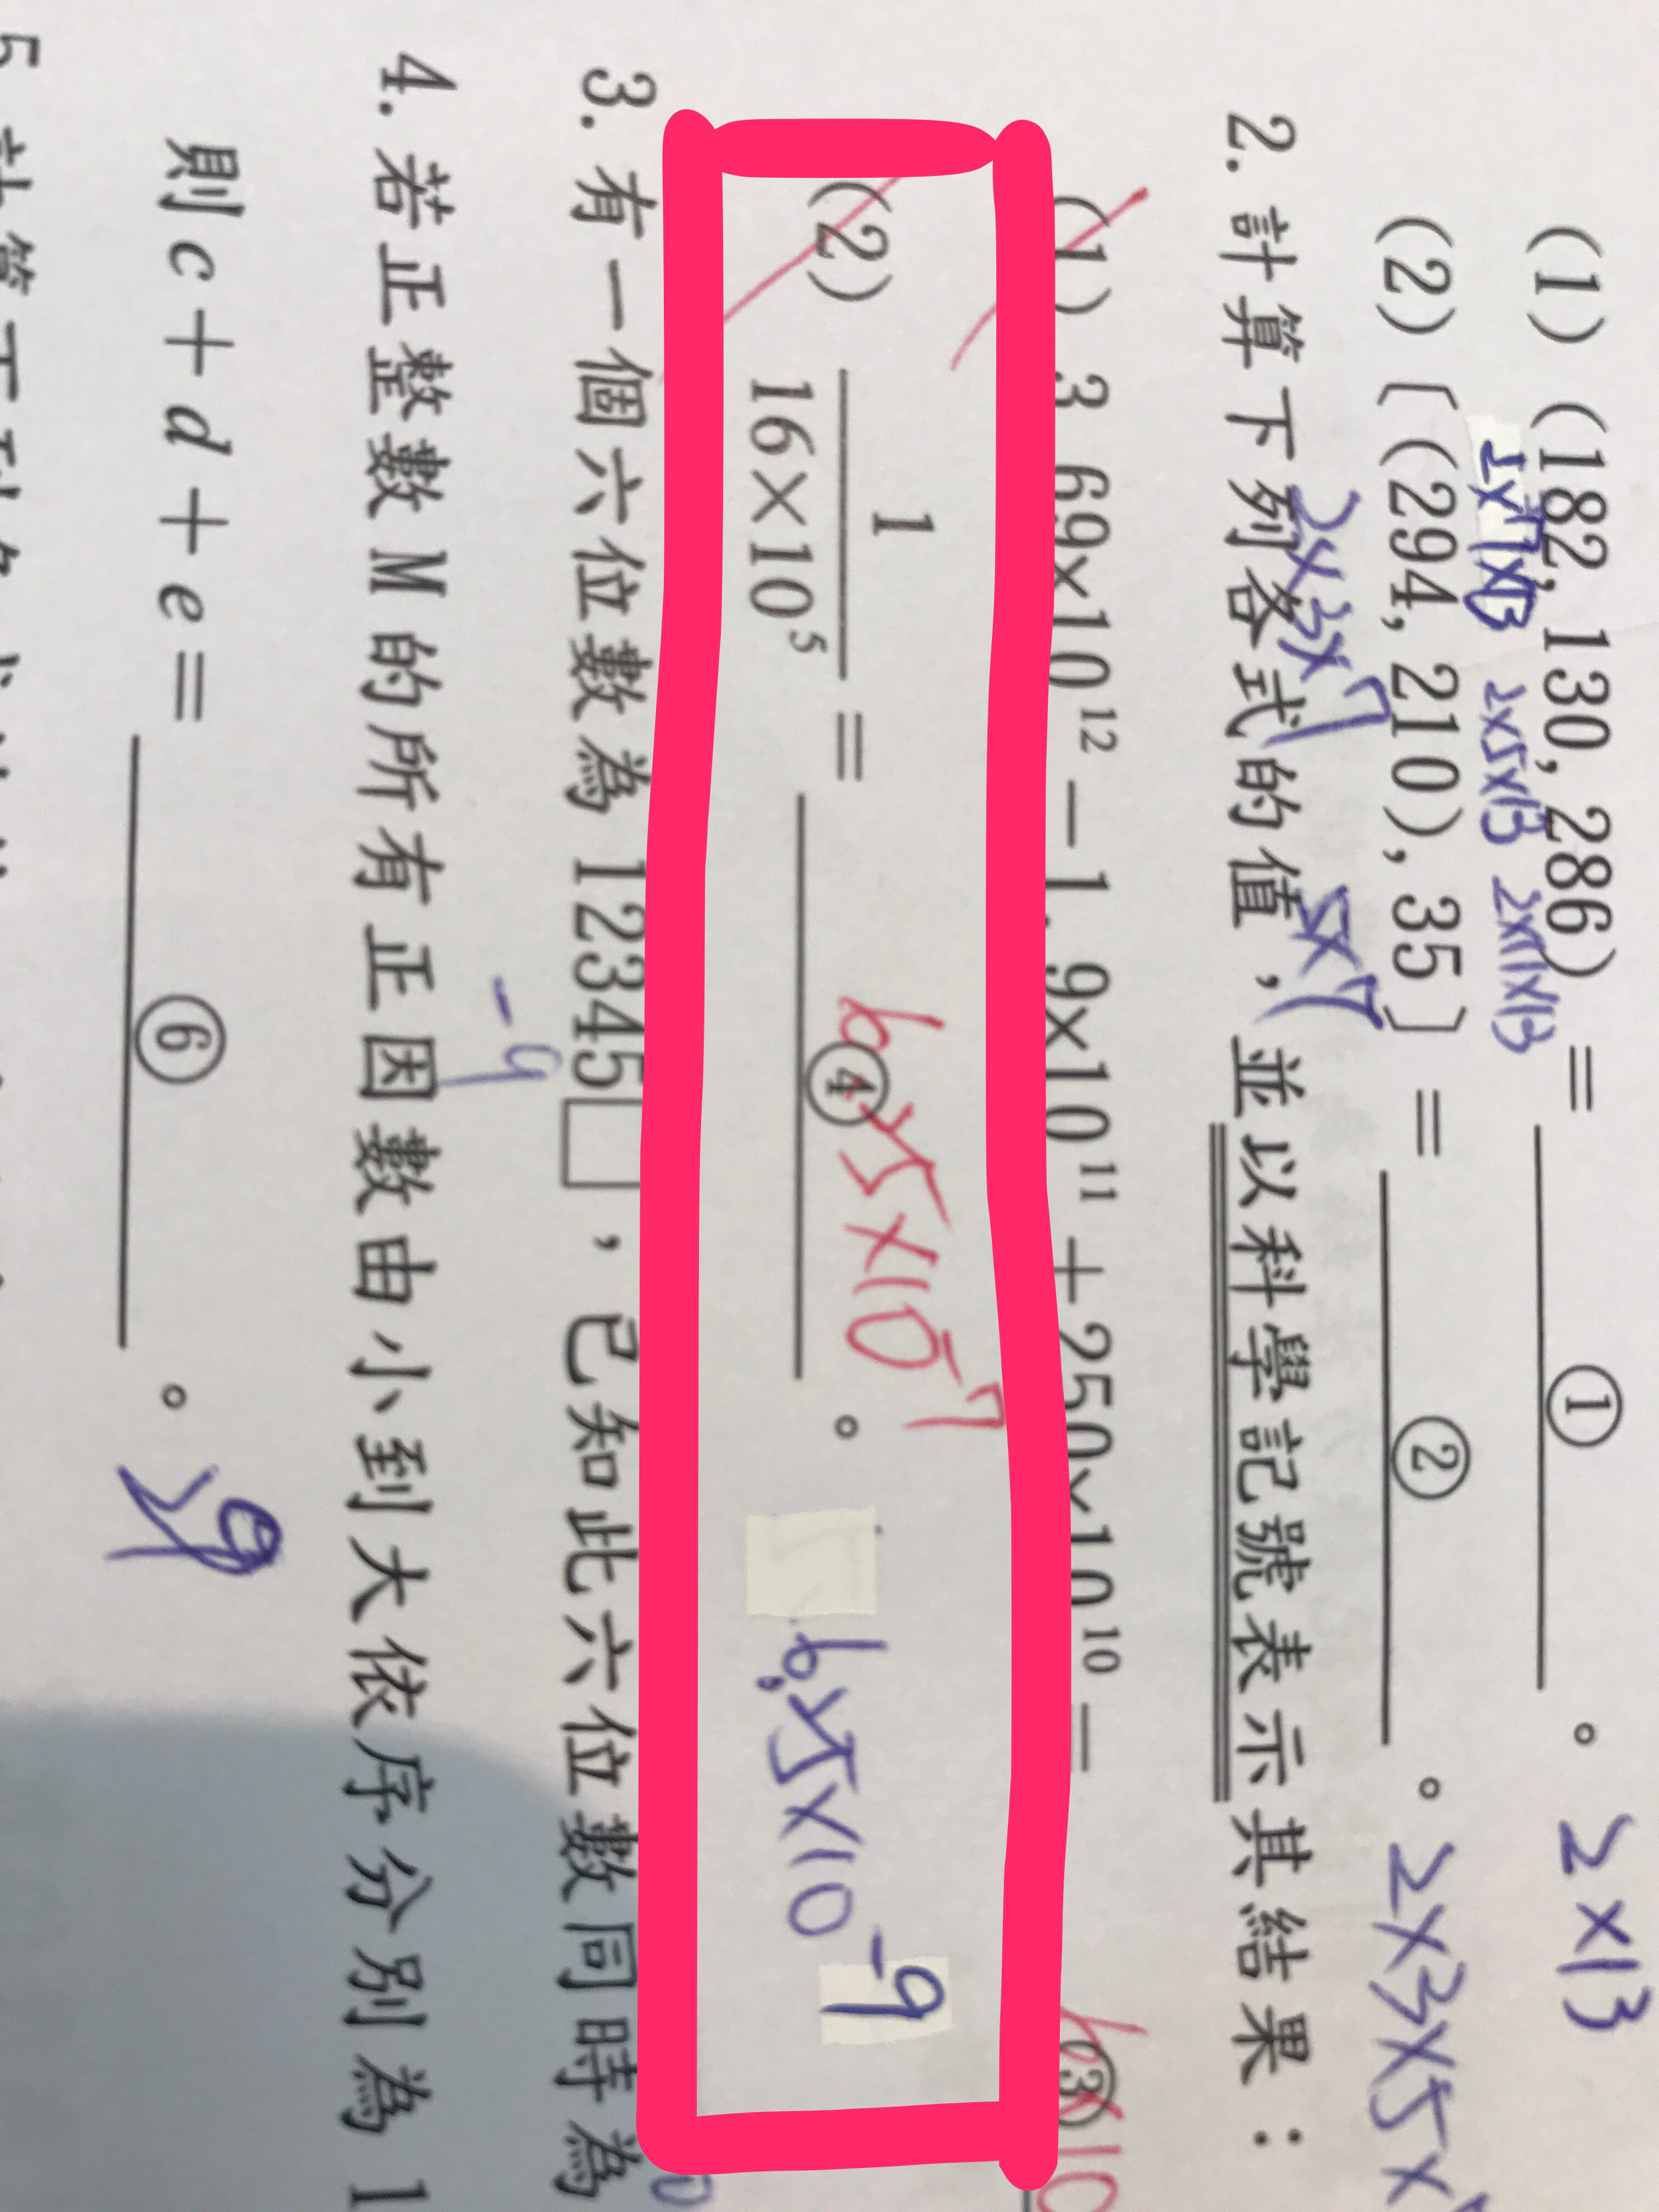 (1) (182, 130, 286) = ① 。 2×13
2×7×13 2×5×13 2×11×13
(2) 〔(294, 210), 35〕 = ② 。 2×3×5×
2×3×7 5×7
2. 計算下列各式的值，並以科學記號表示其結果：
(1) 3.69×10¹² － 1.9×10¹¹ ＋ 250×10¹⁰ ＝ ③
(2) 1/16×10⁵ = ④ 。 6.25×10⁻⁹
6.25×10⁻⁷
3. 有一個六位數為 12345□，已知此六位數同時為
-9
4. 若正整數 M 的所有正因數由小到大依序分別為 1
則 c + d + e = ⑥ 。 29